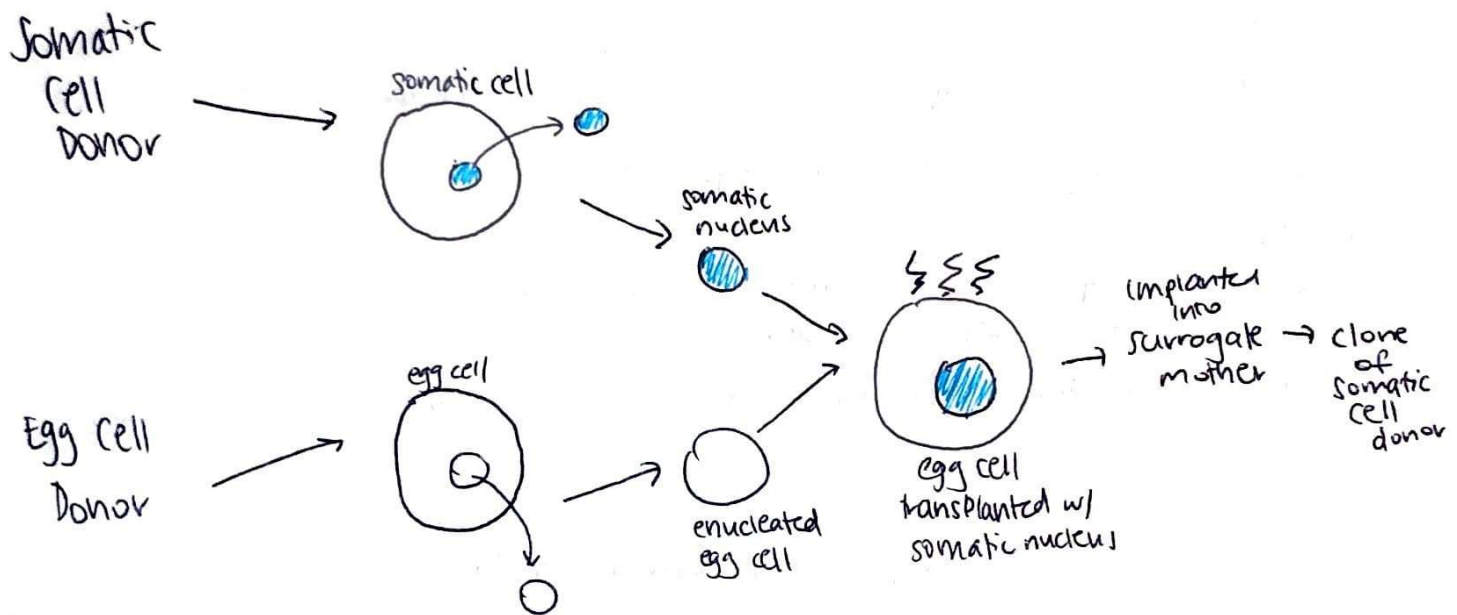 Somatic
Cell
Donor
somatic cell
somatic
nucleus
Egg Cell
Donor
egg cell
enucleated
egg cell
egg cell
transplanted w/
somatic nucleus
implanted
into
surrogate
mother
clone
of
somatic
cell
donor